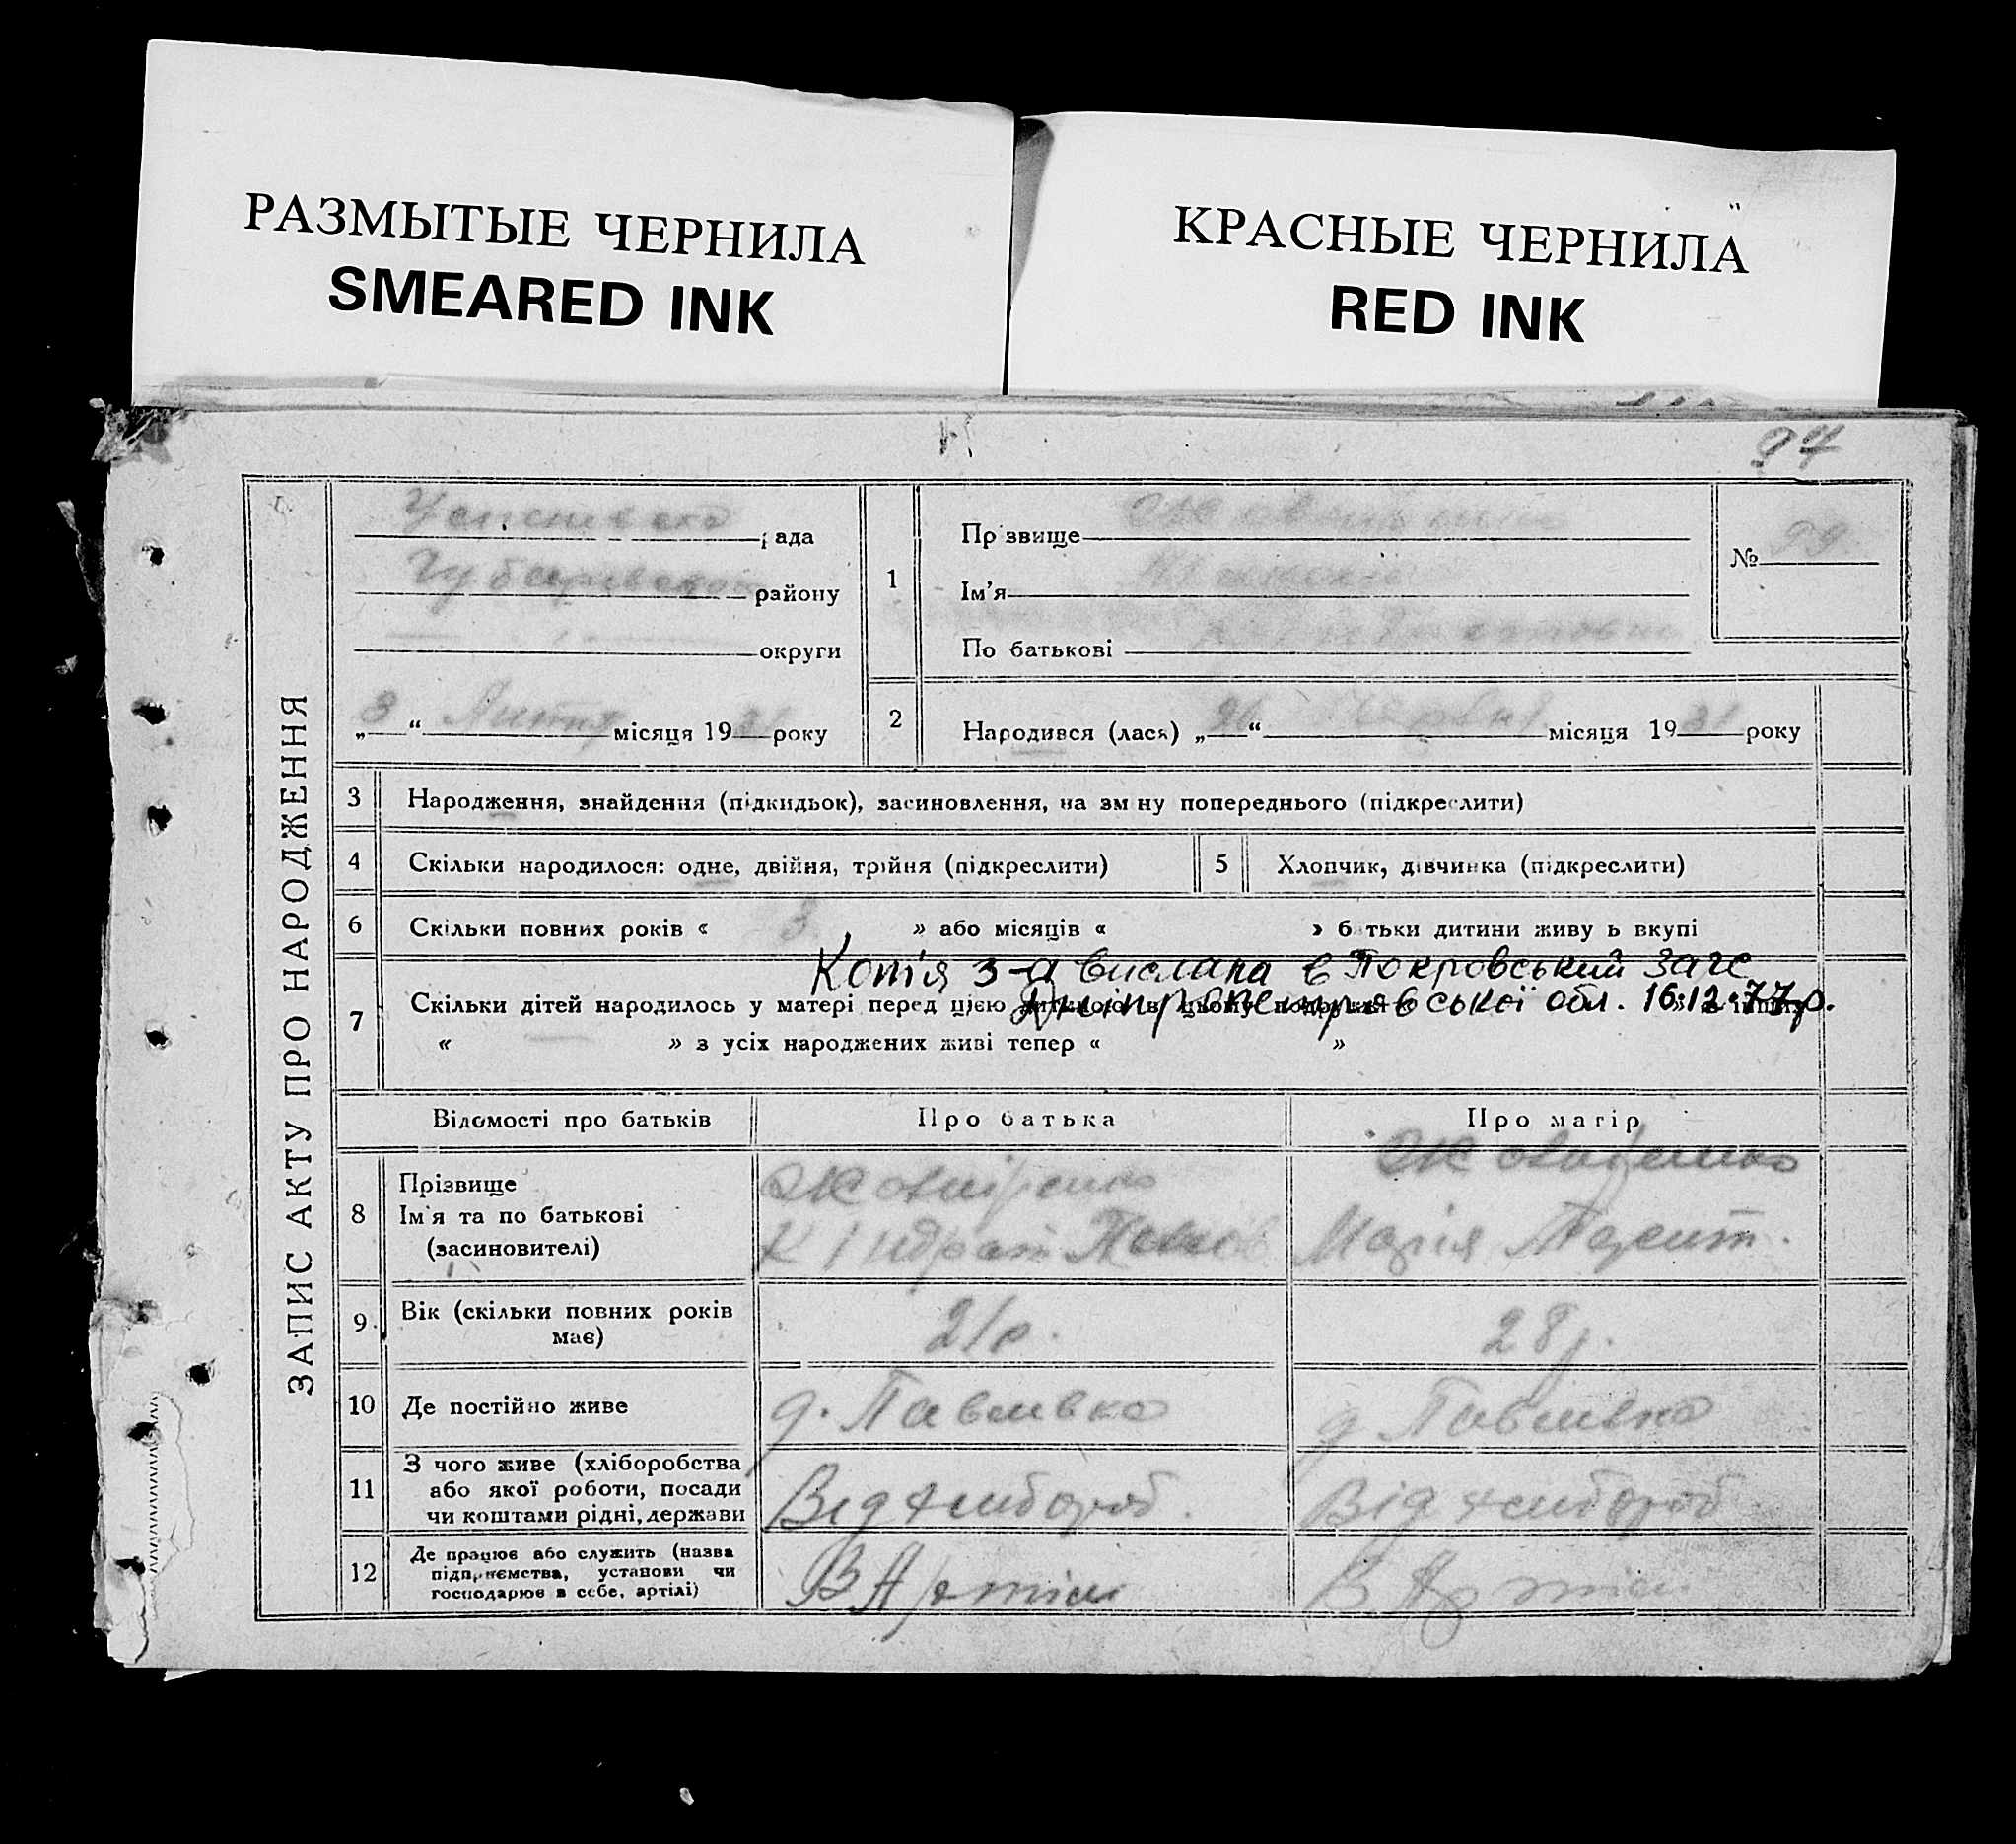 РАЗМЫТЫЕ ЧЕРНИЛА
SMEARED INK
КРАСНЫЕ ЧЕРНИЛА
RED INK
97
ЗАПИС АКТУ ПРО НАРОДЖЕННЯ
рада
району
округи
„3“ Липня місяця 1931 року
1
Прізвище
Ім'я
По батькові
№ 99
2
Народився (лася) „26“ Червня місяця 1931 року
3 Народження, знайдення (підкидьок), засиновлення, на зміну попереднього (підкреслити)
4 Скільки народилося: одне, двійня, трійня (підкреслити)
5 Хлопчик, дівчинка (підкреслити)
6 Скільки повних років « 3 » або місяців « » батьки дитини живуть вкупі
Копія з-а вислана в Покровський Загс
Дніпропетровської обл. 16.12.77р.
7 Скільки дітей народилось у матері перед цією дитиною в цьому
« » з усіх народжених живі тепер « »
Відомості про батьків
Про батька
Про матір
8 Прізвище
Ім'я та по батькові
(засиновителі)
Жовніренко
Кіндрат Павлов
Жовніренко
Марія
9. Вік (скільки повних років має)
21р.
28р.
10 Де постійно живе
д. Павлівка
д Павлівка
11 З чого живе (хліборобства
або якої роботи, посади
чи коштами рідні, держави
Від хлібороб.
Від хлібороб
12 Де працює або служить (назва
підприємства, установи чи
господарює в себе, артілі)
В Артілі
В Артілі